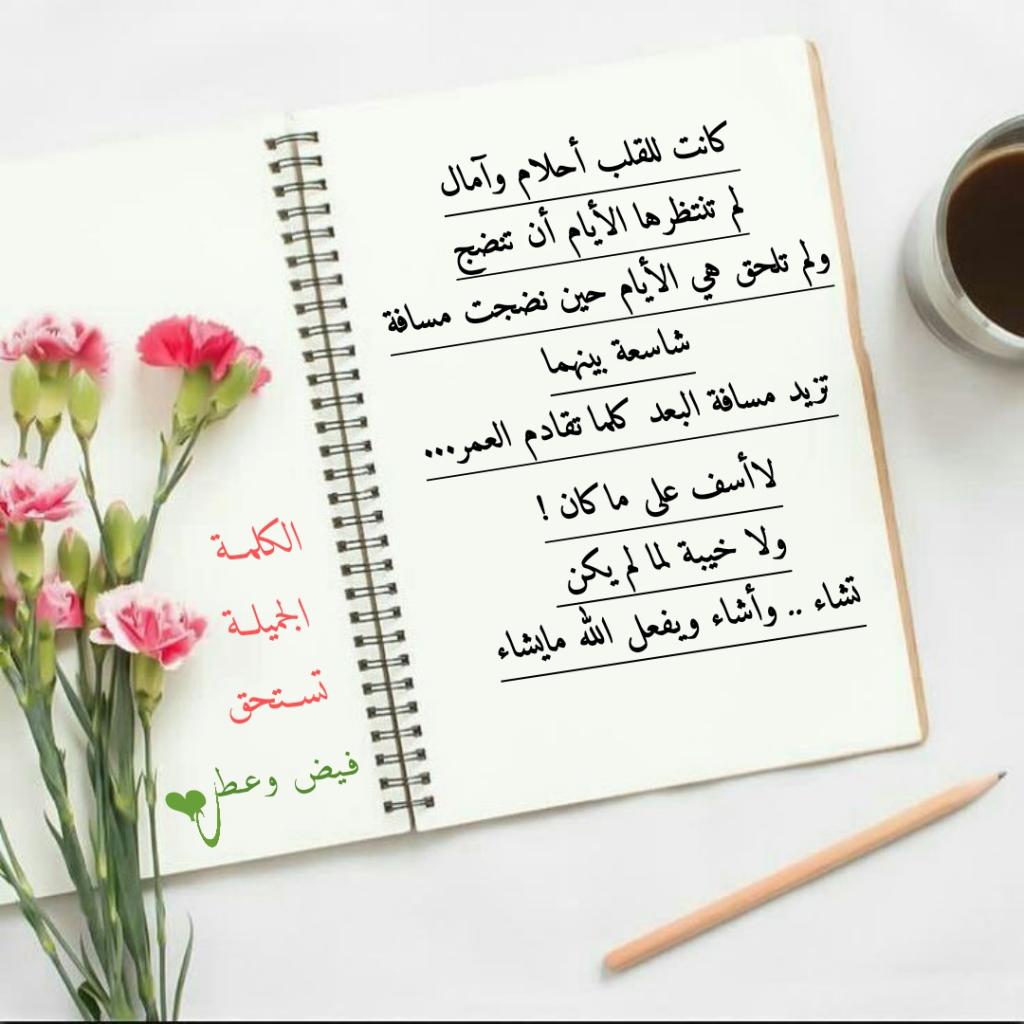 كانت للقلب أحلام وآمال
لم تنتظرها الأيام أن تنضج
ولم تلحق هي الأيام حين نضجت مسافة
شاسعة بينهما
تزيد مسافة البعد كلما تقادم العمر...
لاأسف على ماكان !
ولا خيبة لما لم يكن
تشاء .. وأشاء ويفعل الله مايشاء
الكلمـة
الجميلـة
تسـتحق
فيض وعطر